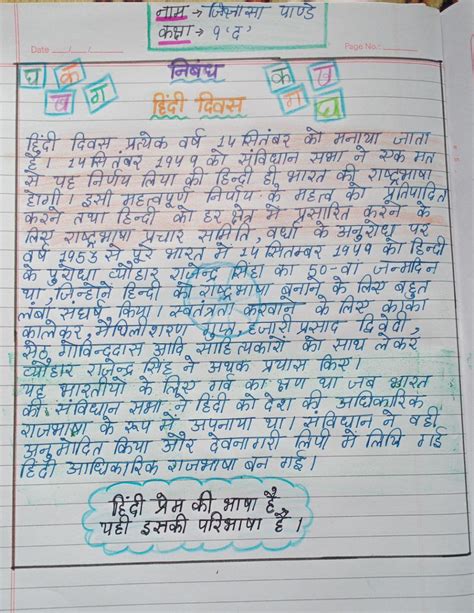 नाम → जिज्ञासा पाण्डे
कक्षा → 9 'द'
Date __/__/__ Page No.:
घ क
ख ग
निबंध
क ख
ग घ
हिंदी दिवस
हिंदी दिवस प्रत्येक वर्ष 14 सितंबर को मनाया जाता
है। 14 सितंबर 1949 को संविधान सभा ने एक मत
से यह निर्णय लिया की हिन्दी ही भारत की राष्ट्रभाषा
होगी। इसी महत्वपूर्ण निर्णय के महत्व को प्रतिपादित
करने तथा हिन्दी को हर क्षेत्र में प्रसारित करने के
लिए राष्ट्रभाषा प्रचार समिति, वर्धा के अनुरोध पर
वर्ष 1953 से पूरे भारत में 14 सितम्बर 1949 को हिन्दी
के पुरोधा व्यौहार राजेन्द्र सिंहा का 50-वां जन्मदिन
था, जिन्होंने हिन्दी को राष्ट्रभाषा बनाने के लिए बहुत
लंबा संघर्ष किया। स्वतंत्रता करवाने के लिए काका
कालेकर, मैथिलीशरण गुप्त, हजारी प्रसाद द्विवेदी,
सेठ गोविन्ददास आदि साहित्यकारों को साथ लेकर
व्यौहार राजेन्द्र सिंह ने अथक प्रयास किए।
यह भारतीयो के लिए गर्व का क्षण था जब भारत
की संविधान सभा ने हिंदी को देश की आधिकारिक
राजभाषा के रूप में अपनाया था। संविधान ने वही
अनुमोदित किया और देवनागरी लिपी में लिपि गई
हिंदी आधिकारिक राजभाषा बन गई।
हिंदी प्रेम की भाषा है,
यही इसकी परिभाषा है।